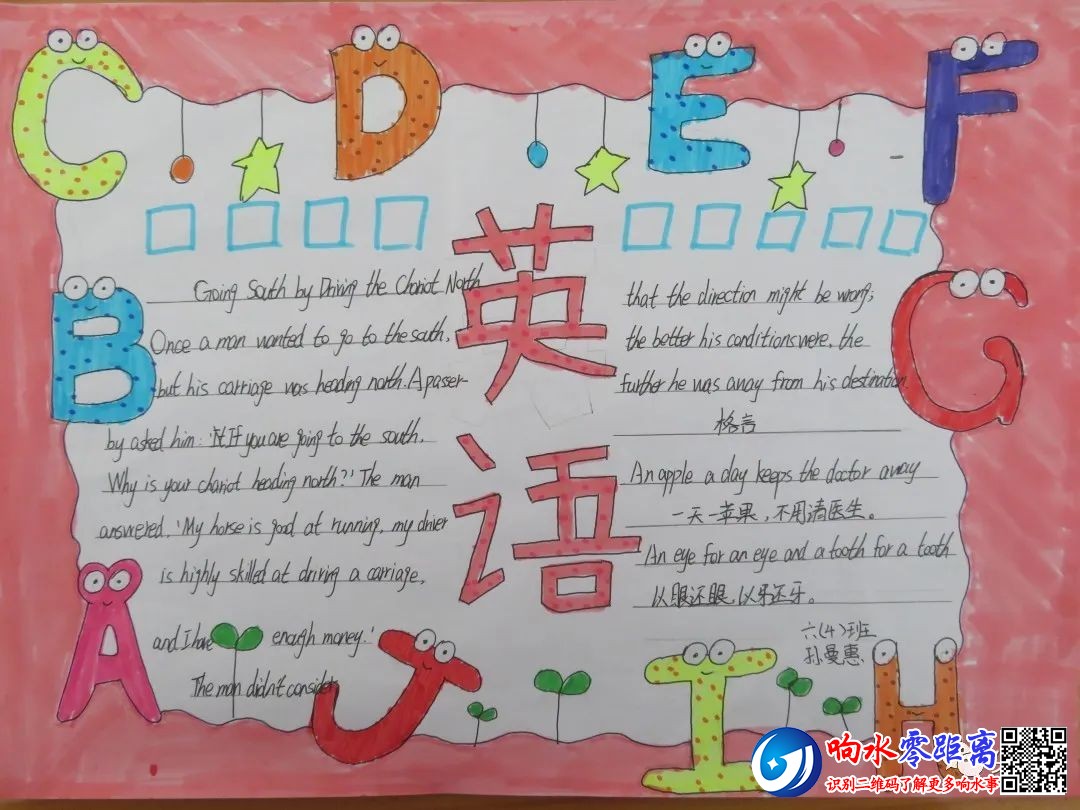 C D E F
Going South by Driving the Chariot North
Once a man wanted to go to the south,
but his carriage was heading north. A passer-
by asked him: 'It If you are going to the south,
Why is your chariot heading north?' The man
answered. 'My horse is good at running, my driver
is highly skilled at driving a carriage,
and I have enough money.'
The man didn't consider
英语
that the direction might be wrong;
the better his conditions were, the
further he was away from his destination.
格言
An apple a day keeps the doctor away
一天一苹果，不用请医生。
An eye for an eye and a tooth for a tooth
以眼还眼，以牙还牙。
六(4)班
孙曼惠
B
G
A
J I H
响水零距离
识别二维码了解更多响水事